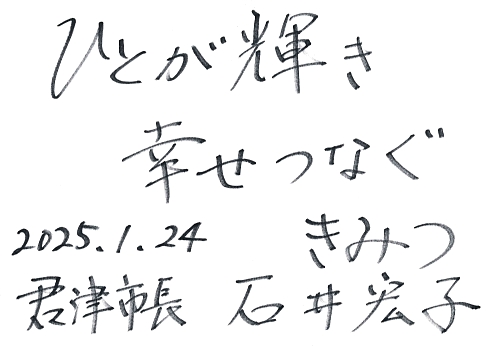 ひとが輝き
幸せつなぐ
きみつ
2025.1.24
君津市長 石井宏子